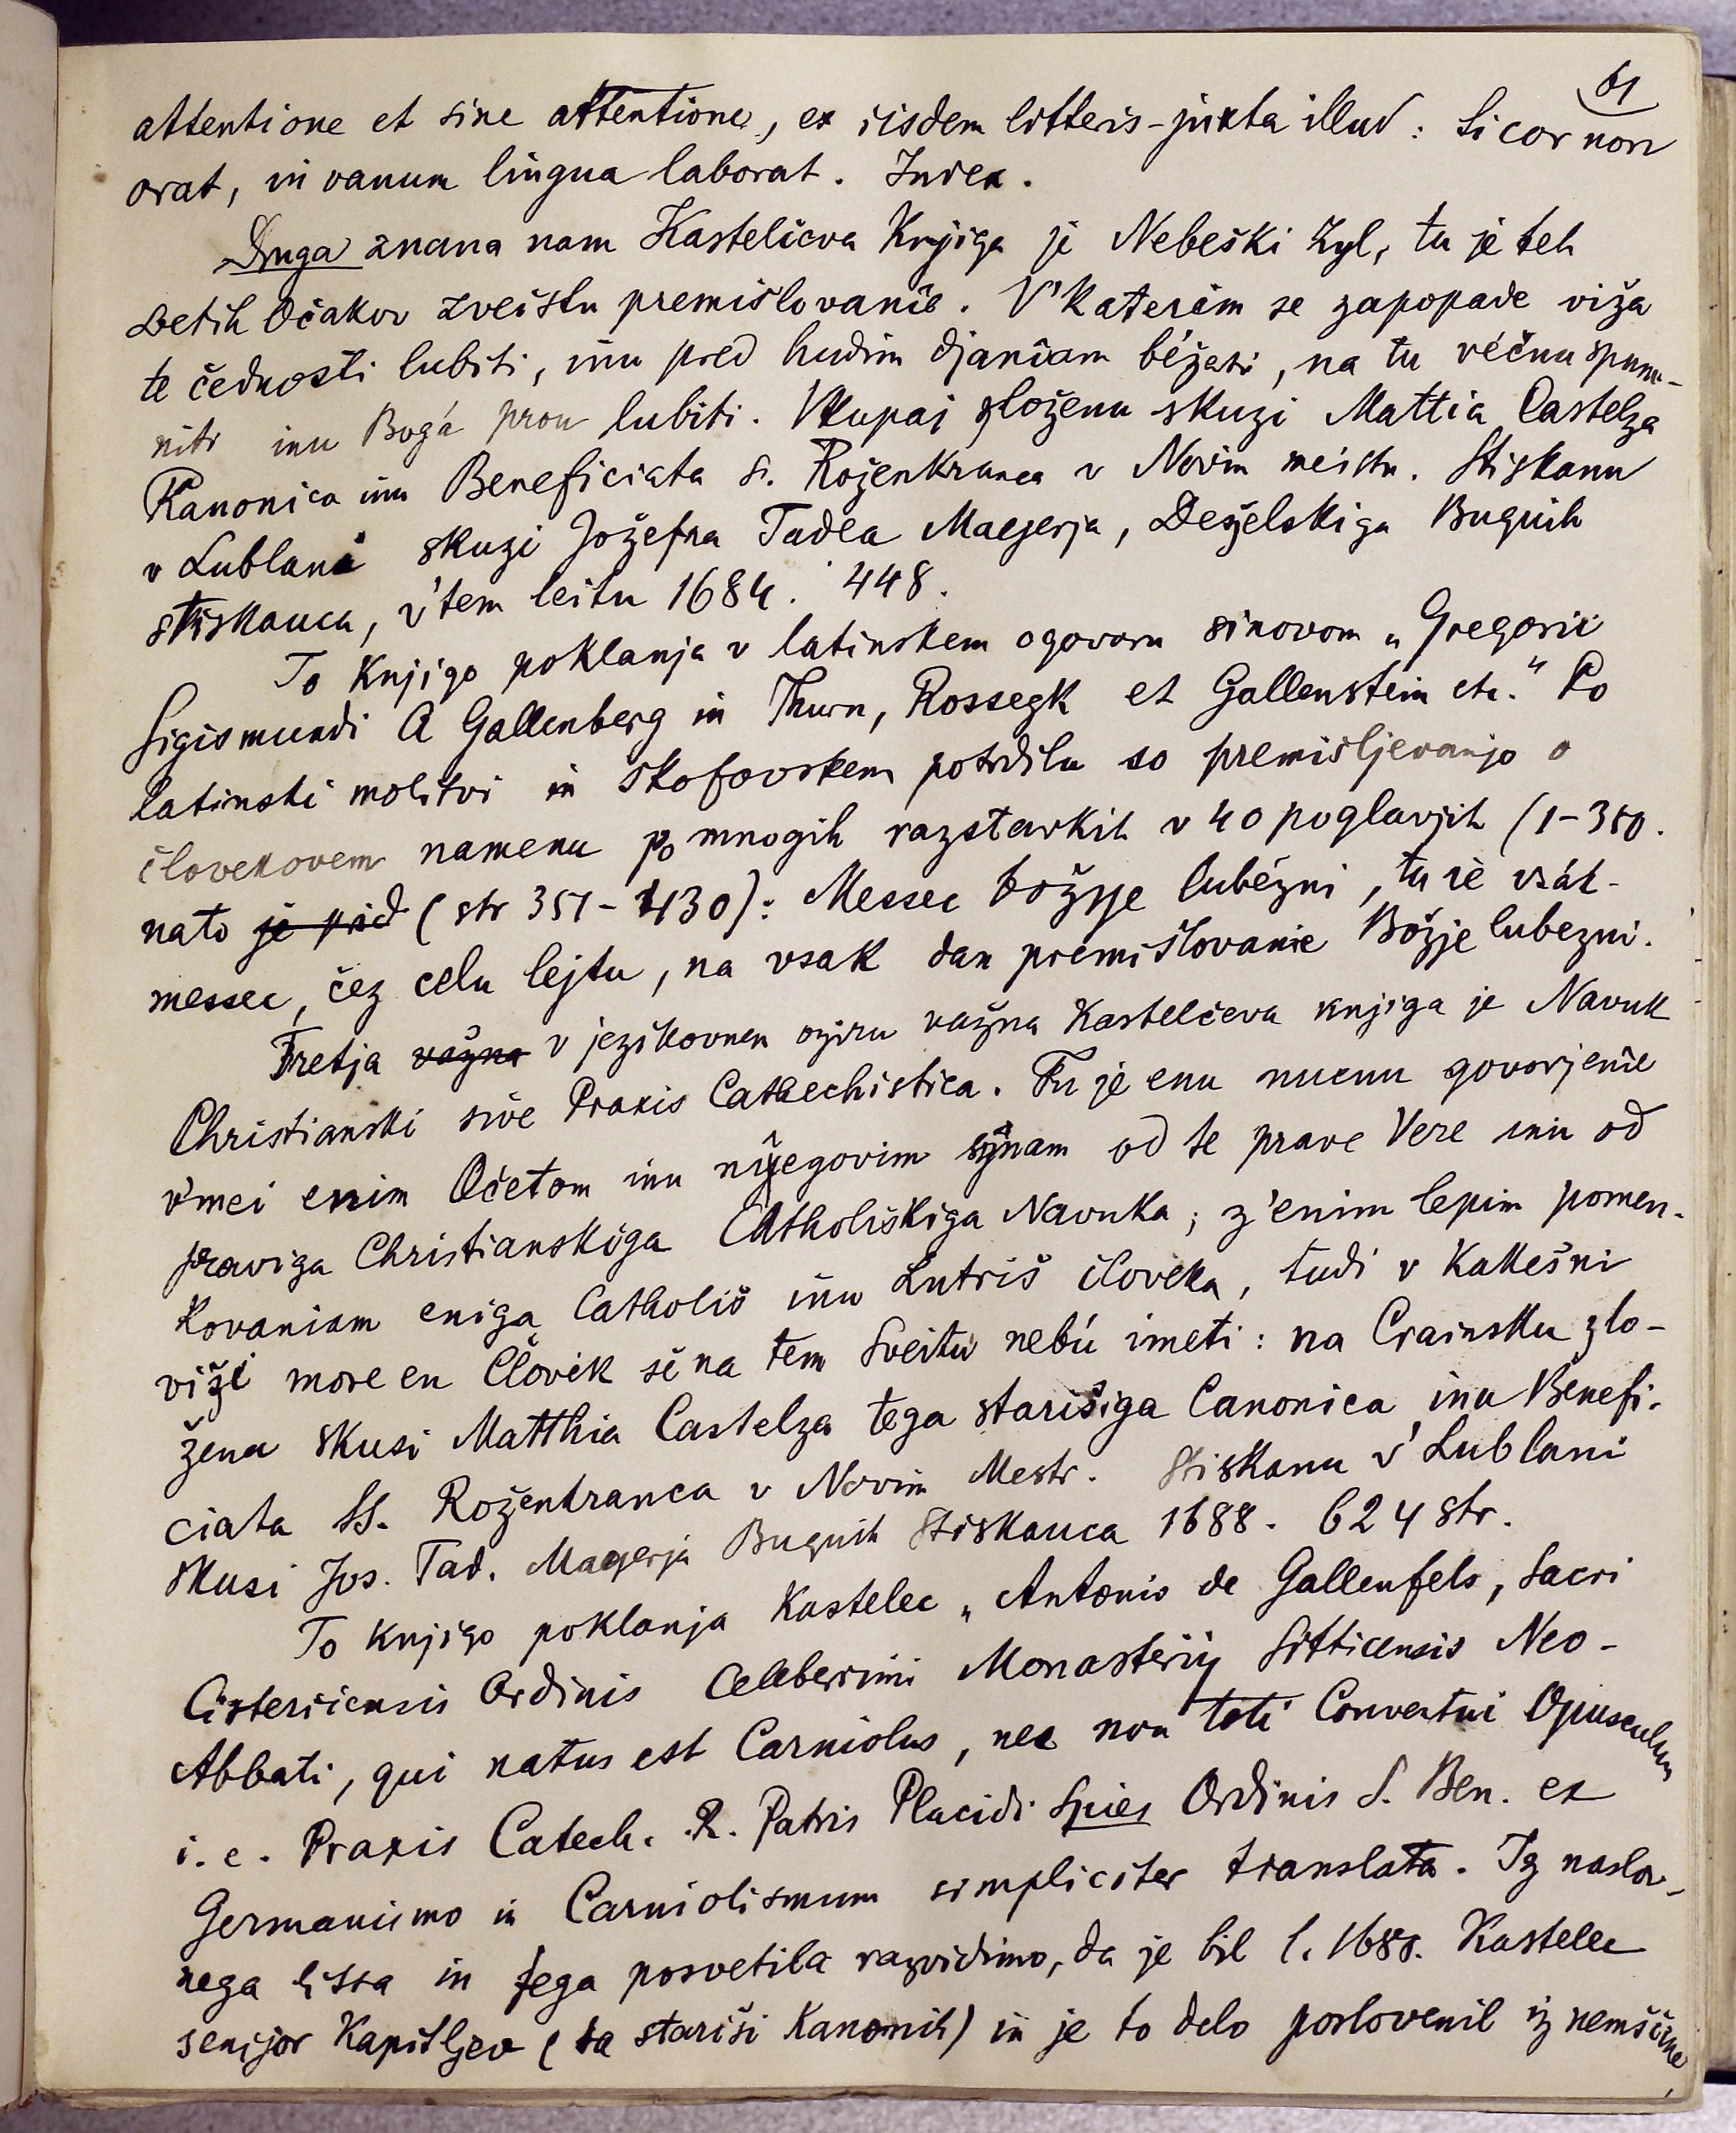 61
attentione et sine attentione, ex iisdem litteris - juxta illud: Si cor non
orat, in vanum lingua laborat. Index.
Druga znana nam Kastelčeva Knjiga je Nebeški Zyl, tu je teh
svetih Očakov zveistu premišlovanîe. V'katerim se zapopade viža
te čednosti lubiti, inu pred hudim djanîam béžati, na tu véčnu spum-
niti inu Bogá prou lubiti. Vkupaj zloženu skuzi Mattia Castelza
Kanonica inu Beneficiata S. Roženkranca v Novim meistu. Stiskanu
v Lublani skuzi Jožefna Tadea Mayerja, Deželskiga Buquih
stiskauca, v'tem leitu 1684. 448.
To Knjigo poklanja v latinskem ogovoru sinovom „Gregorii
Sigismundi A Gallenberg in Thurn, Rossegk et Gallenstein etc." Po
latinski molitvi in škofovskem potrdilu so premišljevanjo o
človekovem namenu po mnogih razstavkih v 40 poglavjih (1-350.
nato je pred (str 351-430): Messec božyje lubézni, tu ie vsák-
messec, čez celu lejtu, na vsak dan premišlovanie Božje lubezni.
Tretja važna v jezikovnem oziru važna Kastelčeva knjiga je Navuk
Christianski sive Praxis Cathechistica. Tu je enu nucnu govorjenîe
v'mei enim Očetom inu nyegovim synam od te prave Vere inu od
praviga Christianskiga Catholiškiga Navuka; z'enim lepim pomen-
kovaniam eniga Catholiš inu Lutriš človeka, tudi v kakešni
viži more en Človik še na tem Sveitu nebú imeti: na Crainsku zlo-
ženu skusi Matthia Castelza tega starišiga Canonica inu Benefi-
ciata SS. Roženkranca v Novim Mestr. Stiskanu v' Lublani
skusi Jos. Tad. Mayerja Buquih Stiskauca 1688. 624 str.
To knjigo poklanja Kastelec „Antonio de Gallenfels, Sacri
Cisterciensis Ordinis Celeberrimi Monasterij Sitticensis Neo-
Abbati, qui natus est Carniolus, nec non toti Conventui Opusculum
i. e. Praxis Catech. R. Patris Placidi Spies Ordinis S. Ben. ex
Germanismo in Carniolismum simpliciter translata. Iz naslov-
nega lista in tega posvetila razvidimo, da je bil l. 1688. Kastelec
senijor Kapitljev (ta stariši Kanonik) in je to delo poslovenil iz nemščine,